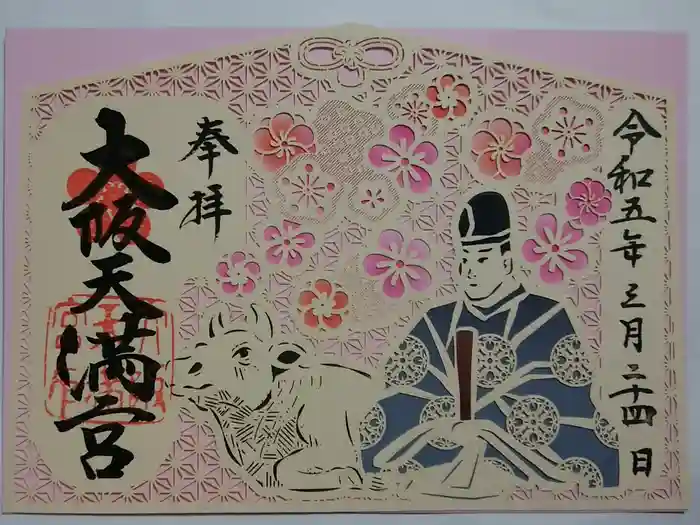 令和五年三月二十四日
奉拝
大阪天満宮